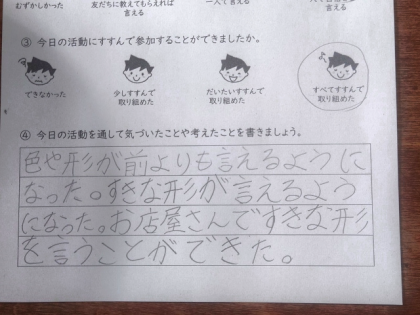 むずかしかった
友だちに教えてもらえれば
言える
一人で言える
言える
③ 今日の活動にすすんで参加することができましたか。
できなかった
少しすすんで
取り組めた
だいたいすすんで
取り組めた
すべてすすんで
取り組めた
④ 今日の活動を通して気づいたことや考えたことを書きましょう。
色や形が前よりも言えるように
なった。すきな形が言えるよう
になった。お店屋さんですきな形
を言うことができた。